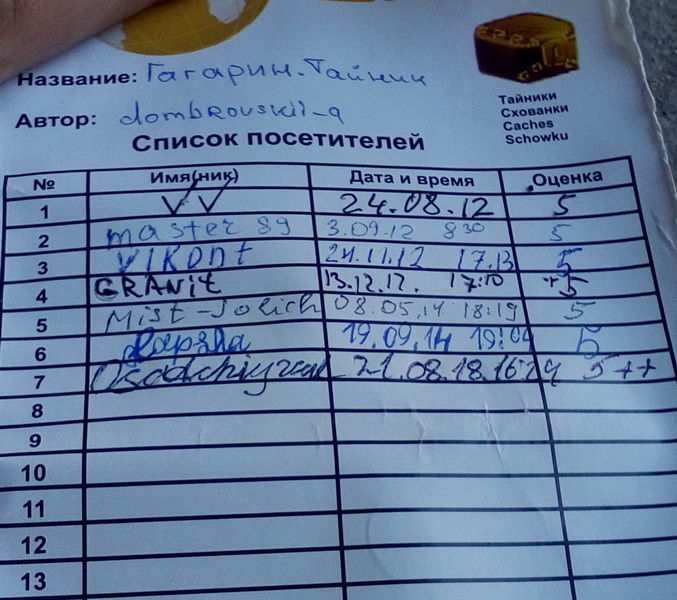 Название: Гагарин-Тайник
Автор: dombrovskii-a
Тайники
Схованки
Caches
Schowku
Список посетителей
№ Имя(ник) Дата и время Оценка
1 VV 24.08.12 5
2 master 89 3.09.12 8 30 5
3 VIKont 24.11.12 17.13 5
4 GRANit 13.12.12. 17:10 +5
5 Mist-Jolich 08.05.14 18:19 5
6 19.09.14 19:04 5
7 21.08.18. 5++
8
9
10
11
12
13